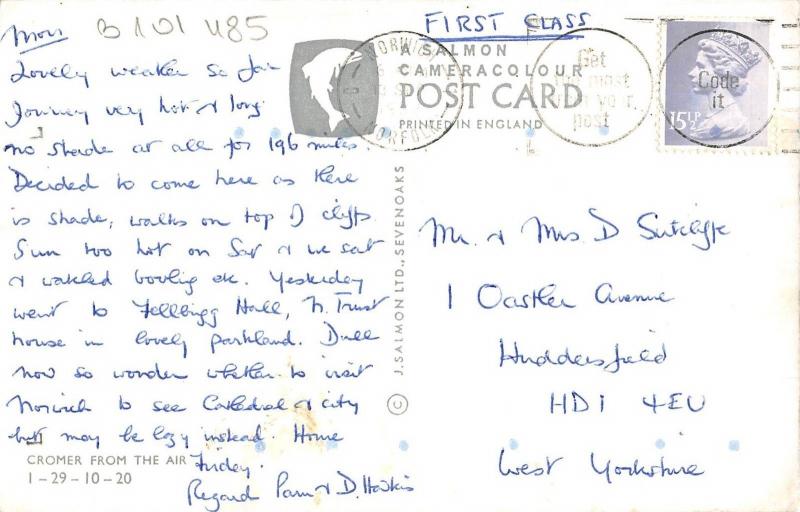 Mon B101485
Lovely weather so far
Journey very hot & long
no shade at all for 196 miles.
Decided to come here as there
is shade, walks on top of cliffs
Sun too hot on Sat & we sat
& watched bowling etc. Yesterday
went to Fellbrigg Hall, N. Trust
house in lovely parkland. Dull
now so wonder whether to visit
Norwich to see Cathedral & city
but may be lazy instead. Home
Friday.
Regard Pam & D.
CROMER FROM THE AIR
1-29-10-20
FIRST CLASS
A SALMON
CAMERACOLOUR
POST CARD
PRINTED IN ENGLAND
© J. SALMON LTD., SEVENOAKS
NORWICH
NORFOLK
Get
the most
from your
post
Code
it
15½P
Mr. & Mrs D Sutcliffe
1 Oastler Avenue
Huddersfield
HD1 4EU
West Yorkshire